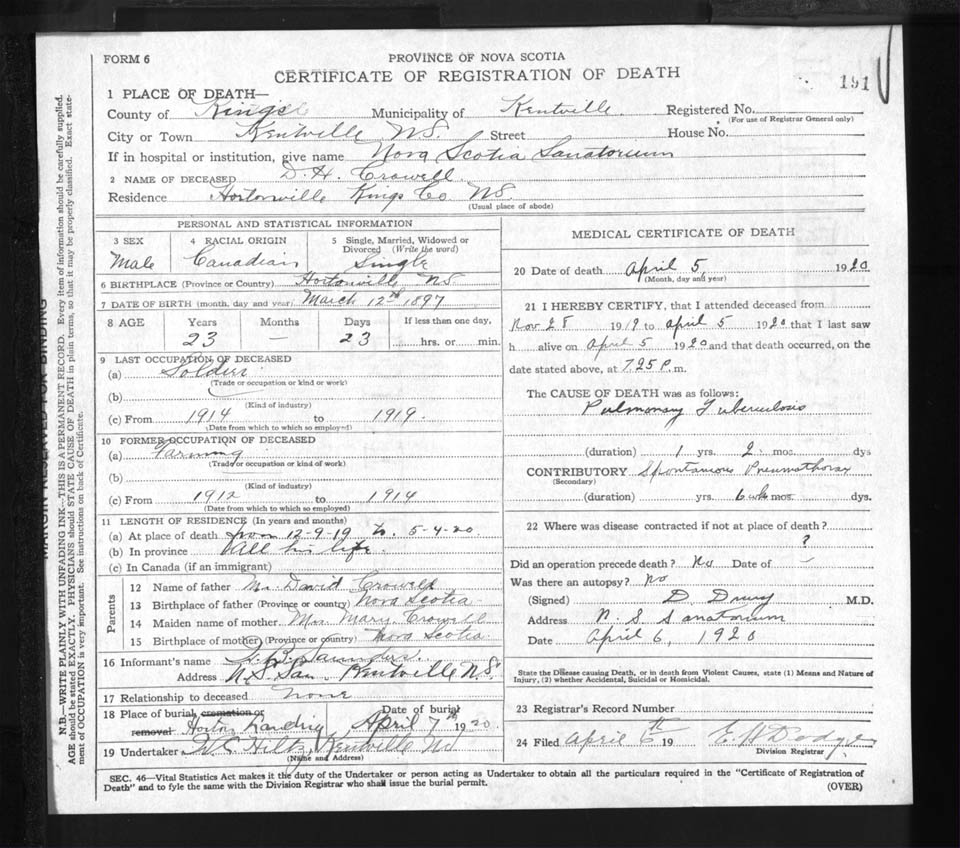 FORM 6
PROVINCE OF NOVA SCOTIA
CERTIFICATE OF REGISTRATION OF DEATH
191
1 PLACE OF DEATH—
County of Kings Municipality of Kentville. Registered No.
(For use of Registrar General only)
City or Town Kentville N.S. Street House No.
If in hospital or institution, give name Nova Scotia Sanatorium
2 NAME OF DECEASED D. H. Crowell.
Residence Hortonville Kings Co. N.S.
(Usual place of abode)
PERSONAL AND STATISTICAL INFORMATION
3 SEX 4 RACIAL ORIGIN 5 Single, Married, Widowed or Divorced (Write the word)
Male Canadian Single
6 BIRTHPLACE (Province or Country) Hortonville N.S.
7 DATE OF BIRTH (month, day and year) March 12nd 1897
8 AGE Years Months Days If less than one day,
23 — 23 hrs. or min.
9 LAST OCCUPATION OF DECEASED
(a) Soldier
(Trade or occupation or kind or work)
(b)
(Kind of industry)
(c) From 1914 to 1919.
(Date from which to which so employed)
10 FORMER OCCUPATION OF DECEASED
(a) Farming
(Trade or occupation or kind of work)
(b)
(Kind of industry)
(c) From 1912 to 1914
(Date from which to which so employed)
11 LENGTH OF RESIDENCE (In years and months)
(a) At place of death from 12-9-19 to 5-4-20
(b) In province All his life.
(c) In Canada (if an immigrant)
Parents
12 Name of father Mr. David Crowell
13 Birthplace of father (Province or country) Nova Scotia
14 Maiden name of mother Mrs. Mary Crowell
15 Birthplace of mother (Province or country) Nova Scotia.
16 Informant's name Saunders.
Address N.S. San. Kentville N.S.
17 Relationship to deceased none
18 Place of burial cremation or removal Date of burial
Horton April 7th 1920.
19 Undertaker Hiltz, Kentville NS
(Name and Address)
MEDICAL CERTIFICATE OF DEATH
20 Date of death April 5, 1920
(Month, day and year)
21 I HEREBY CERTIFY, that I attended deceased from
Nov 28 1919 to April 5 1920 that I last saw
h alive on April 5 1920 and that death occurred, on the
date stated above, at 7.25 P. m.
The CAUSE OF DEATH was as follows:
Pulmonary Tuberculosis
(duration) 1 yrs. 2 mos. dys
CONTRIBUTORY Spontaneous Pneumothorax
(Secondary)
(duration) yrs. 6 wks mos. dys.
22 Where was disease contracted if not at place of death?
?
Did an operation precede death? No Date of —
Was there an autopsy? No
(Signed) D. Drury M.D.
Address N. S. Sanatorium
Date April 6, 1920
State the Disease causing Death, or in death from Violent Causes, state (1) Means and Nature of
Injury, (2) whether Accidental, Suicidal or Homicidal.
23 Registrar's Record Number
24 Filed April 6th 19 E H Dodge
Division Registrar
SEC. 46—Vital Statistics Act makes it the duty of the Undertaker or person acting as Undertaker to obtain all the particulars required in the "Certificate of Registration of
Death" and to fyle the same with the Division Registrar who shall issue the burial permit.
(OVER)
MARGIN RESERVED FOR BINDING
N.B.—WRITE PLAINLY WITH UNFADING INK—THIS IS A PERMANENT RECORD. Every item of information should be carefully supplied.
AGE should be stated EXACTLY. PHYSICIANS should STATE CAUSE OF DEATH in plain terms, so that it may be properly classified. Exact state-
ment of OCCUPATION is very important. See instructions on back of Certificate.